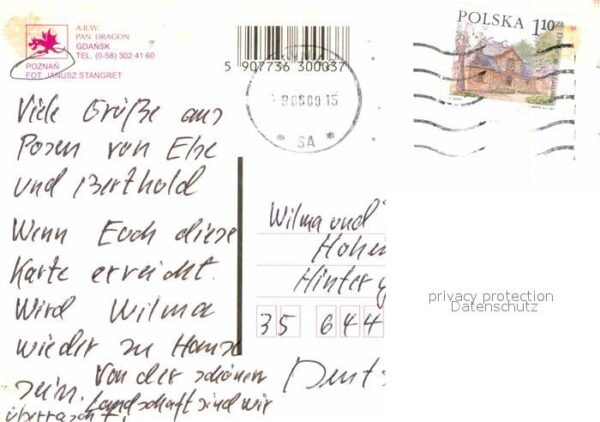 A.R.W.
PAN DRAGON
GDAŃSK
TEL. (0-58) 302 41 60
POZNAŃ
FOT. JANUSZ STANGRET
5 907736 300037
POLSKA 1,10 ZŁ
SA
Viele Grüße aus
Posen von Else
und Berthold
Wenn Euch diese
Karte erreicht.
Wird Wilma
wieder zu Hause
sein. Von der schönen
Landschaft sind wir
überrascht!
Wilma und
Hohen
Hinter
35 644
Deuts
privacy protection
Datenschutz